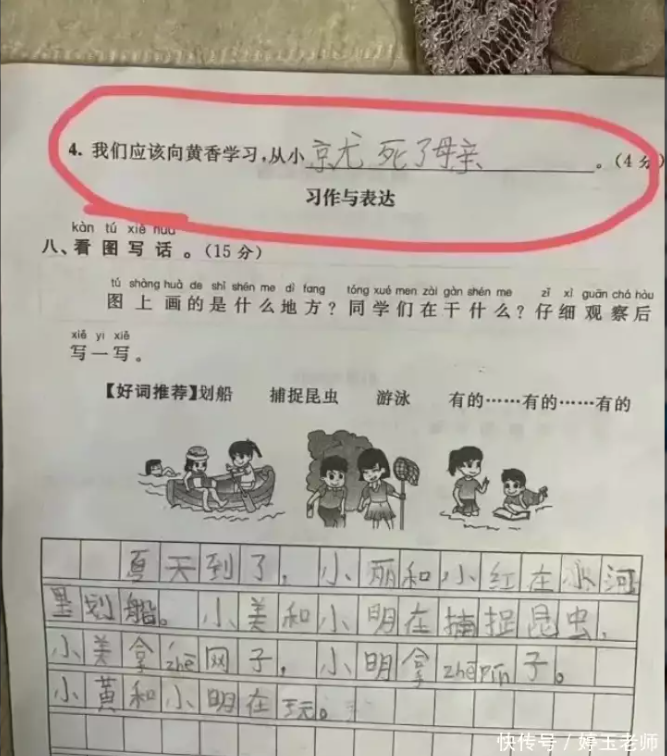 4. 我们应该向黄香学习,从小京尤死了母亲。(4分)
习作与表达
kàn tú xiě huà
八、看图写话。(15分)
tú shàng huà de shì shén me dì fang tóng xué men zài gàn shén me zǐ xì guān chá hòu
图上画的是什么地方?同学们在干什么?仔细观察后
xiě yi xiě
写一写。
【好词推荐】划船 捕捉昆虫 游泳 有的……有的……有的
夏天到了,小丽和小红在水河
里划船。小美和小明在捕捉昆虫,
小美拿zhe网子,小明拿zhe pín子。
小黄和小明在玩。
快传号/婷玉老师